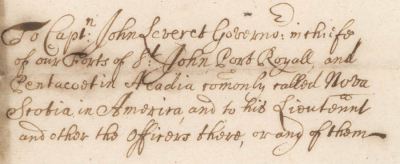 To Captn. John Leveret Governor: in chiefe
of our Forts of St. John Port Royall, and
Pentacoet in Acadia comonly called Nova
Scotia in America, and to his Lieutennt
and other the Officers there, or any of them